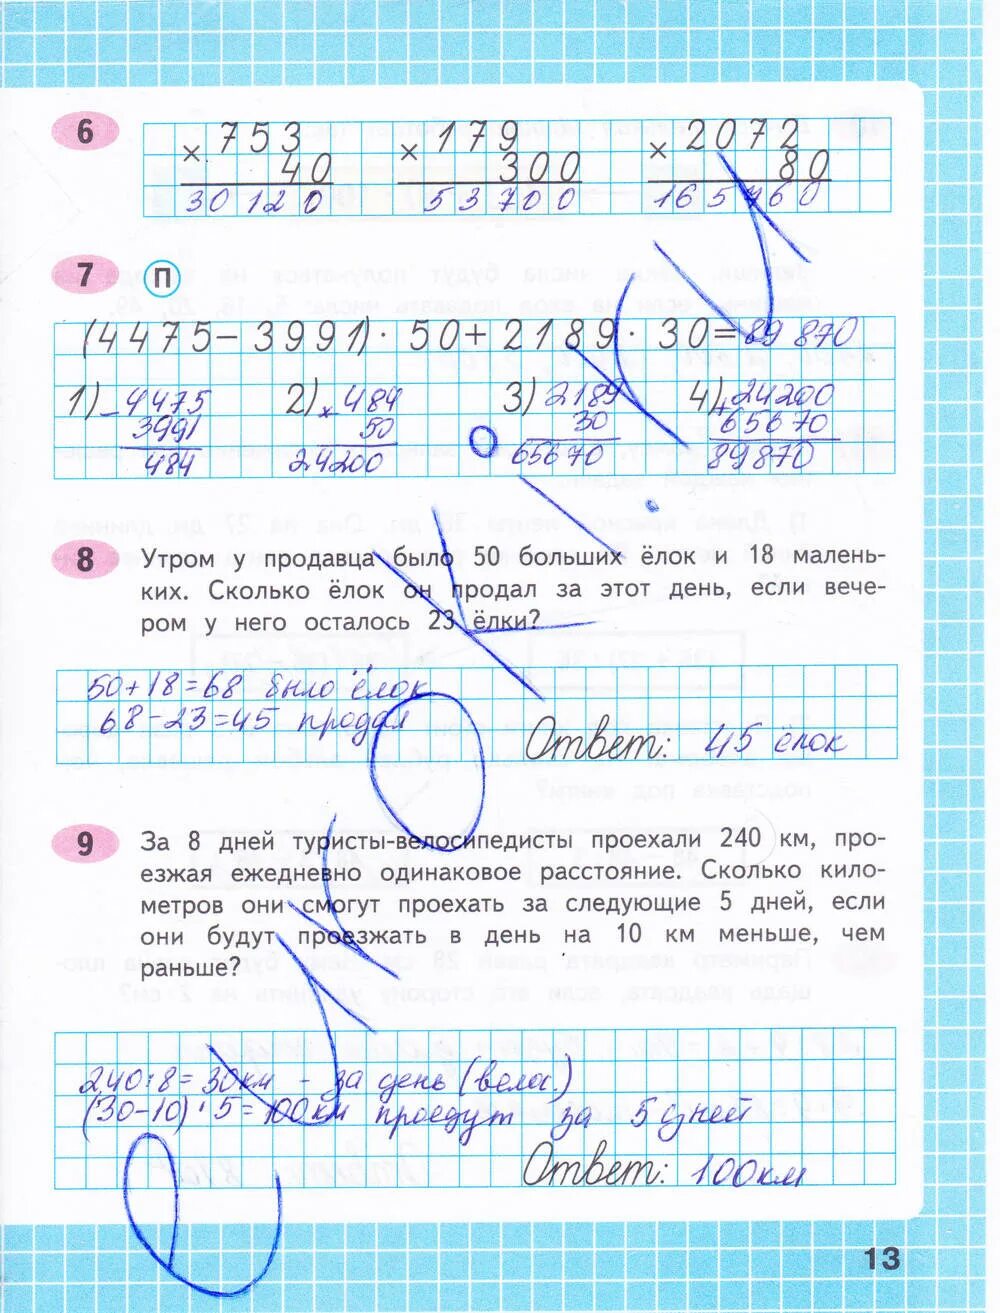 6
× 753 × 179 × 2072
40 300 80
30120 53700 165760
7 П
(4475 – 3991) · 50 + 2189 · 30 = 89 870
1) – 4475 2) × 484 3) 2189 4) + 24200
3991 50 30 65670
484 24200 65670 89870
8 Утром у продавца было 50 больших ёлок и 18 малень-
ких. Сколько ёлок он продал за этот день, если вече-
ром у него осталось 23 ёлки?
50 + 18 = 68 было ёлок
68 – 23 = 45 продал
Ответ: 45 ёлок
9 За 8 дней туристы-велосипедисты проехали 240 км, про-
езжая ежедневно одинаковое расстояние. Сколько кило-
метров они смогут проехать за следующие 5 дней, если
они будут проезжать в день на 10 км меньше, чем
раньше?
240 : 8 = 30 км – за день (вела.)
(30 – 10) · 5 = 100 км проедут за 5 дней
Ответ: 100 км
13